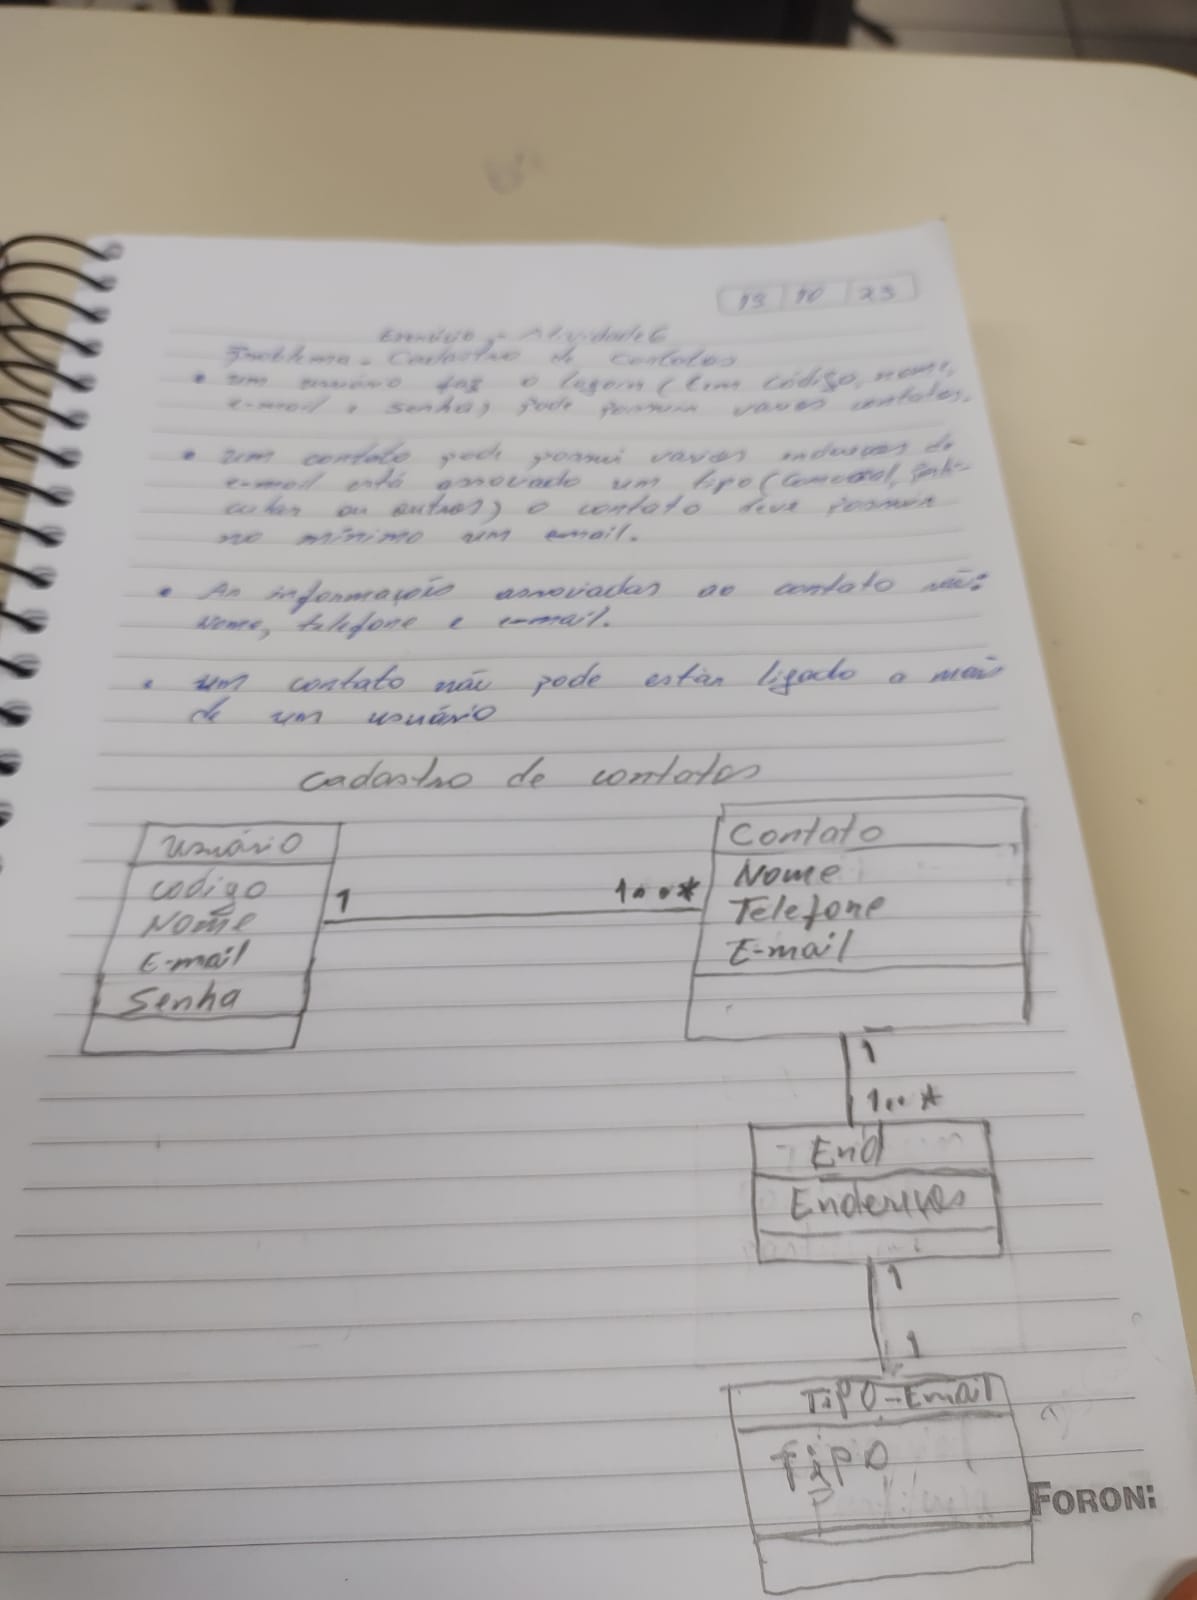 13 10 23
Exercício - Atividade 6
Problema - Cadastro de contatos
• um usuário faz o logom (tem código, nome,
e-mail e senha) pode possuir varios contatos.
• um contato pode possui varios endereços de
e-mail está associado um tipo (comercial, parti-
cular ou outros) o contato deve possuir
no mínimo um email.
• As informação associadas ao contato são:
Nome, telefone e e-mail.
• um contato não pode estar ligado a mais
de um usuário
cadastro de contatos
usuário
codigo
Nome
E-mail
Senha
1
1..*
Contato
Nome
Telefone
E-mail
1
1..*
End
Endereços
1
1
TiPO-Email
tipo
FORONI